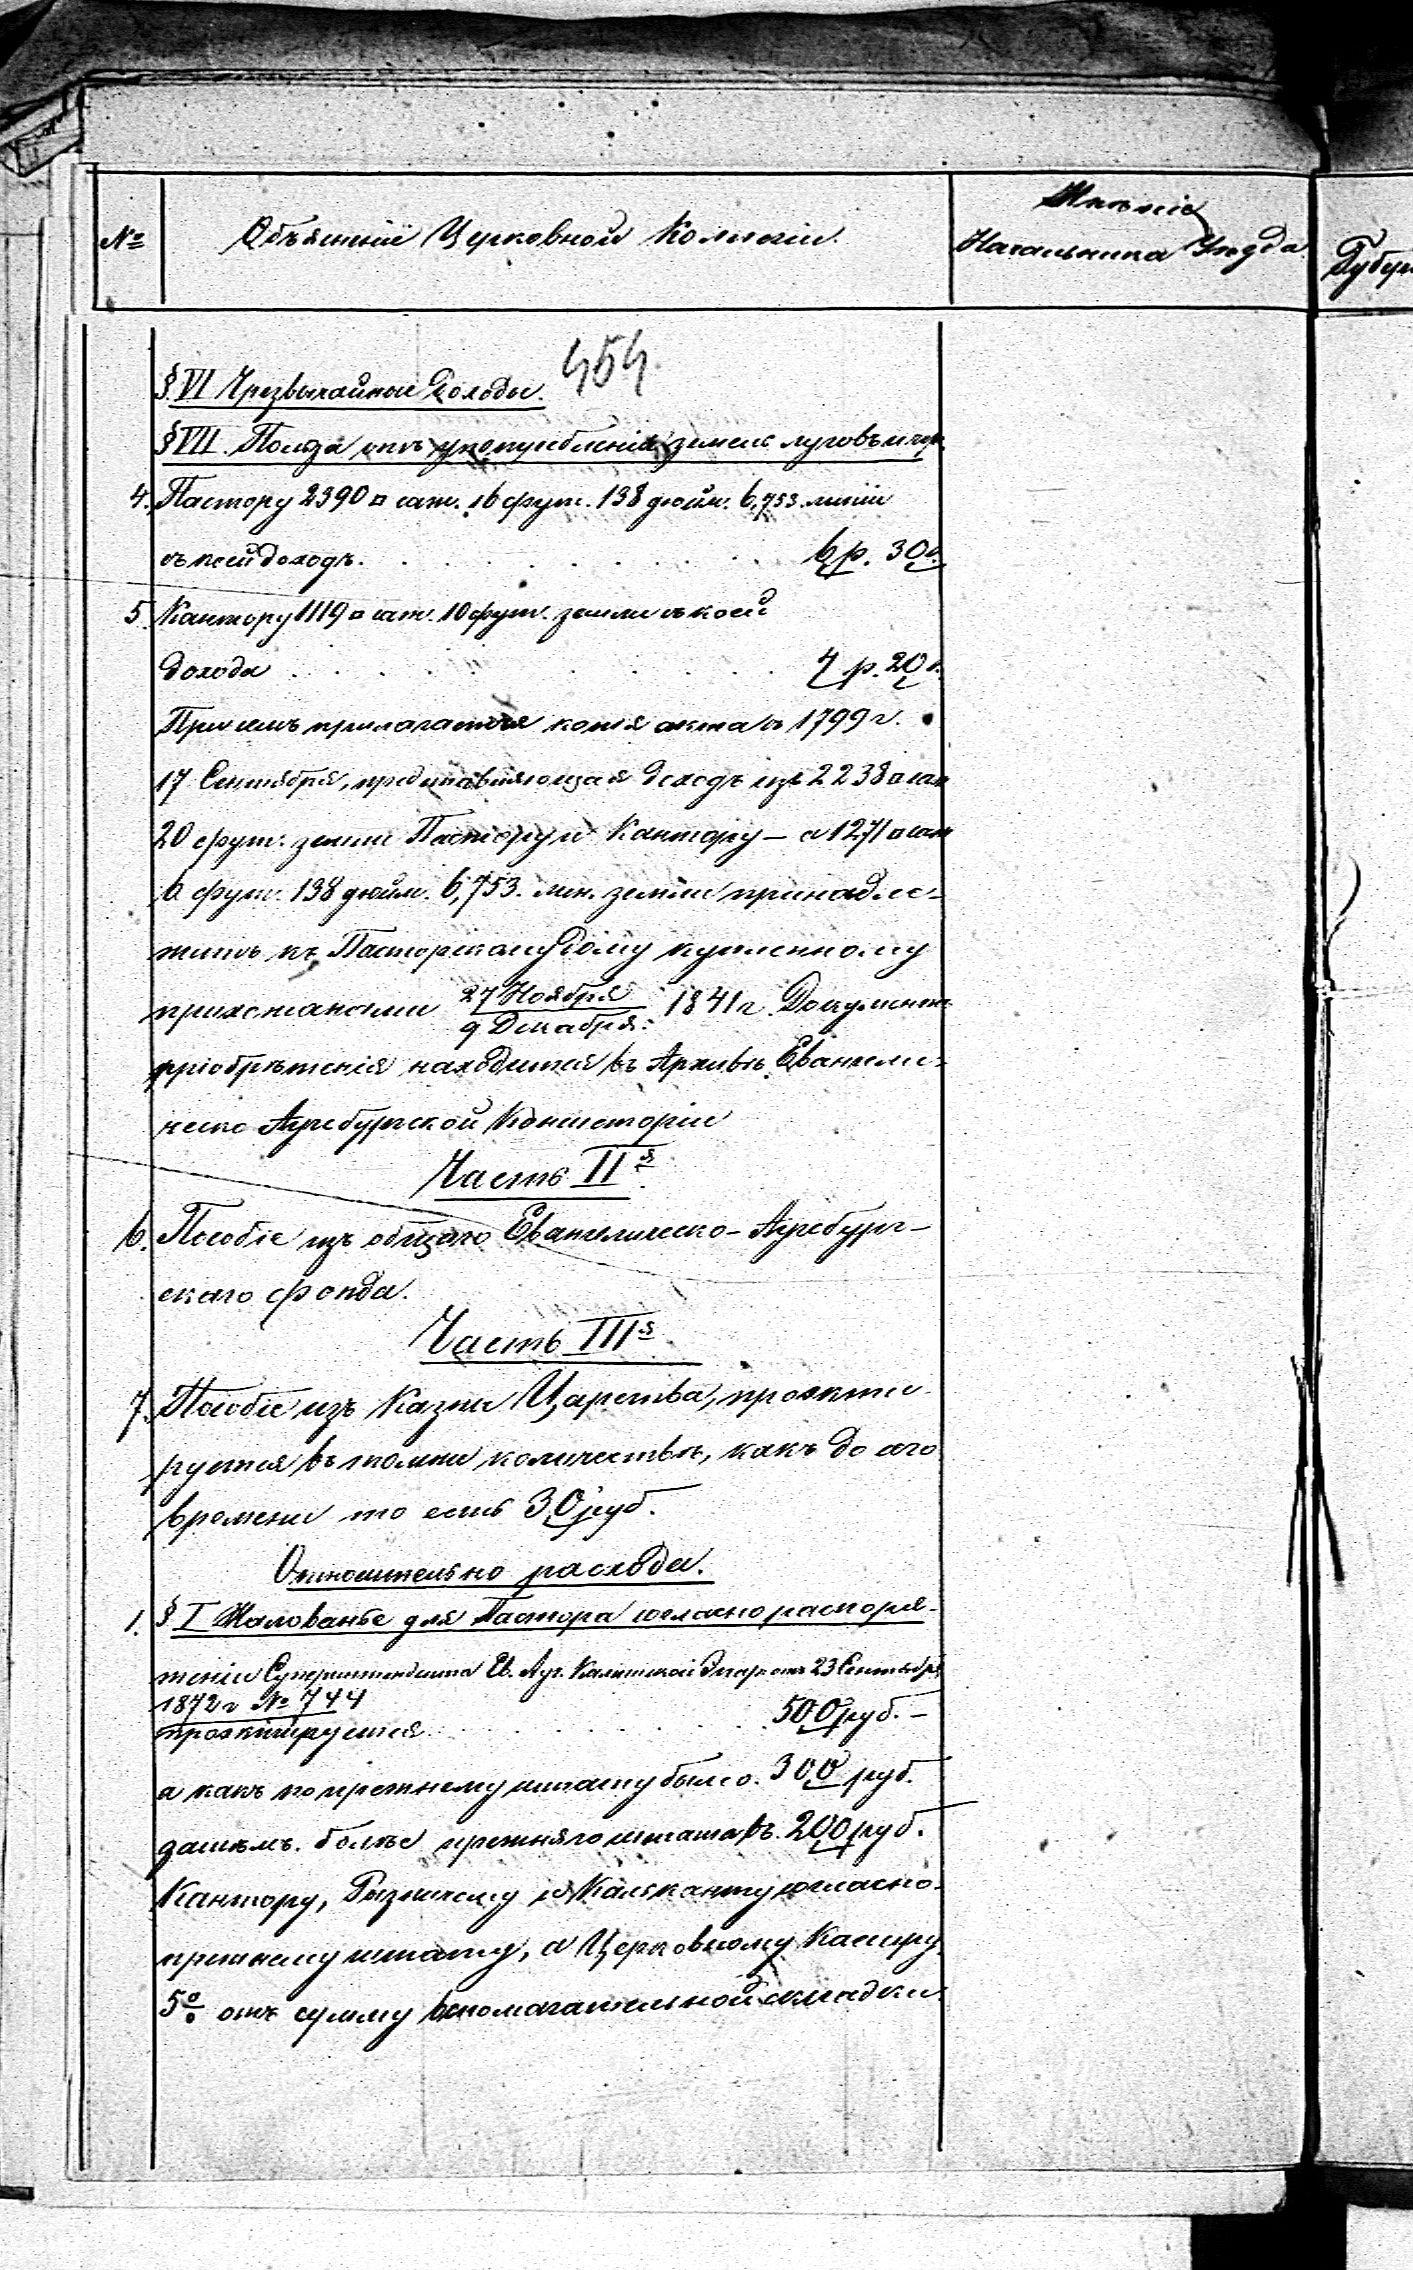 №
Объясненiе Церковной Коллегiи.
Мнѣнiе
Начальника Уѣзда
Губер
454
§ VI Чрезвычайные Доходы.
§ VII. Польза отъ употребленiя земель луговъ и пр.
4. Пастору 2390 □ саж. 16 фут. 138 дюйм. 6,753. линiи
съ коей доходъ . . . 6 р. 30 к.
5. Кантору 1119 □ саж. 10 фут. земли съ коей
дохода . . . 4 р. 20 к.
При семъ прилагается копiя акта съ 1799 г.
17 Сентября, предоставляющая доходъ изъ 2238 □ саж
20 фут. земли Пастору и Кантору – а 1271 □ саж
6 фут. 138 дюйм. 6,753. лин. земли принадле-
житъ къ Пасторскому Дому купленному
прихожанами 27 Ноября / 9 Декабря 1841 г. Документ
прiобрѣтенiя находится въ Архивѣ Евангели-
ческо Аугсбургской Консисторiи
Часть II я
6. Пособiе изъ общаго Евангелическо-Аугсбург-
скаго фонда.
Часть III я
7. Пособiе изъ Казны Царства, проэкти-
руется въ томже количествѣ, какъ до сего
времени то есть 30 руб.
Относительно расхода.
1. § I Жалованье для Пастора согласно распоря-
женiи Суперинтендента Ев. Ауг. Калишской Дiоц. отъ 23 Сентября
1872 г № 744
проэктируется . . . 500 руб. –
а какъ по прежнему штату было. 300 руб.
затѣмъ. болѣе прежняго штата въ. 200 руб.
Кантору, Ризничему и Кальканту согласно
прежнему штату, а Церковному Кассиру
5% отъ сумму вспомагательной складки.